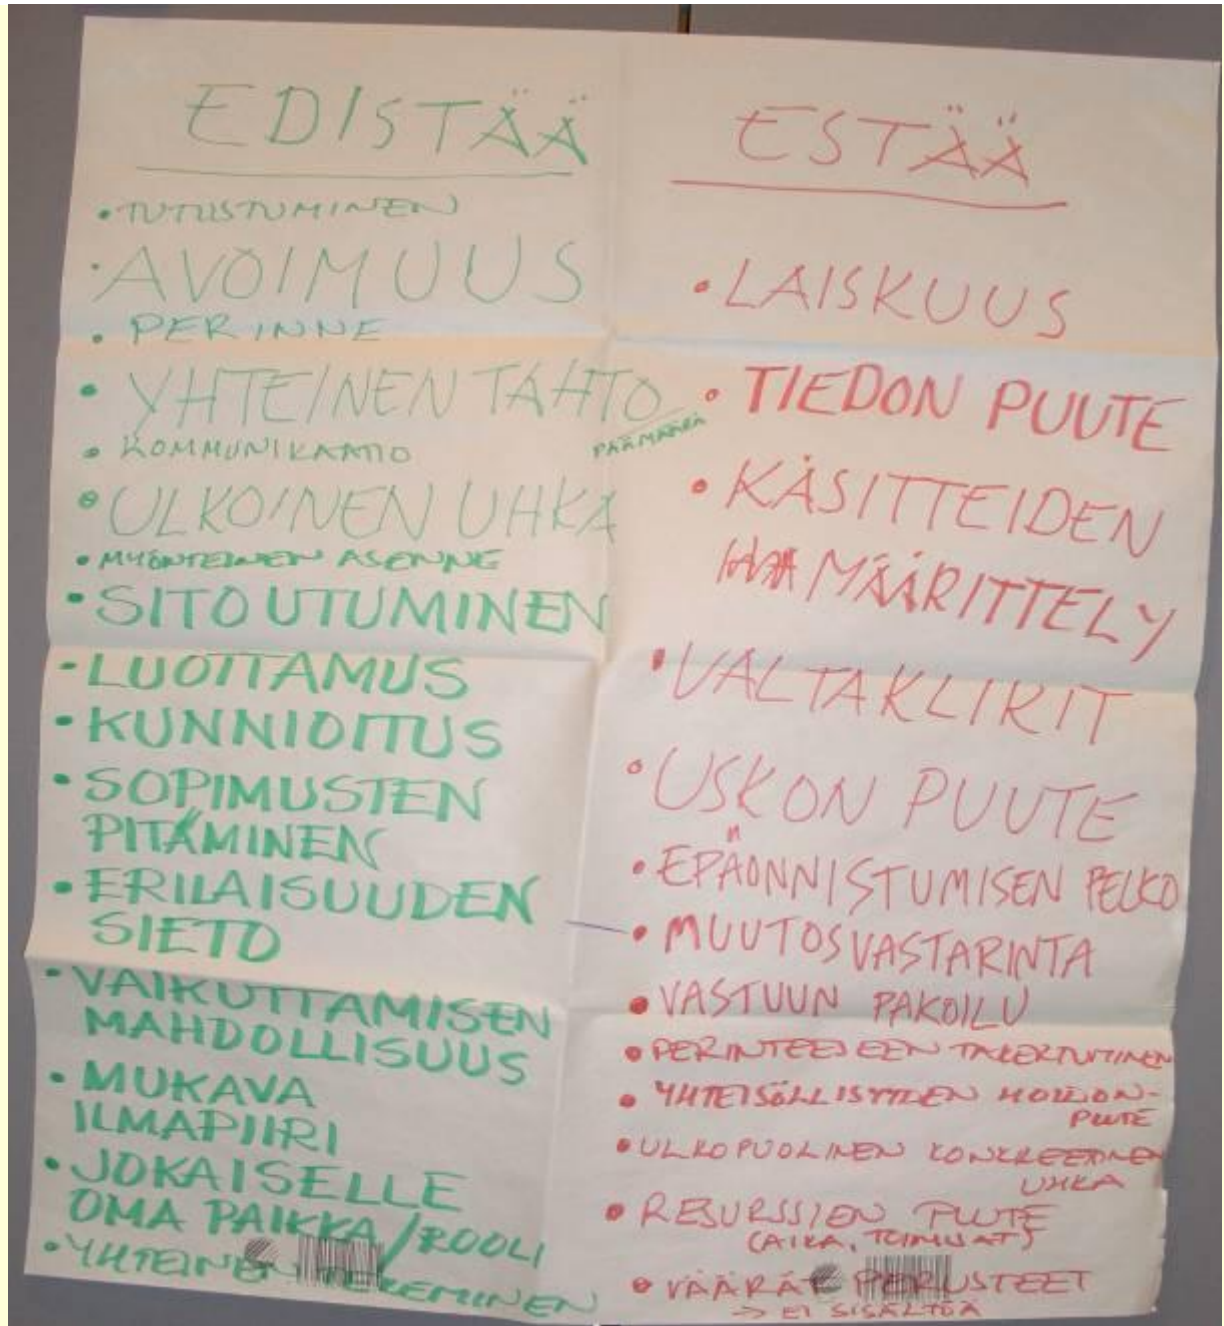 EDISTÄÄ
• TUTUSTUMINEN
• AVOIMUUS
• PERINNE
• YHTEINEN TAHTO/
PÄÄMÄÄRÄ
• KOMMUNIKAATIO
• ULKOINEN UHKA
• MYÖNTEINEN ASENNE
• SITOUTUMINEN
- LUOTTAMUS
• KUNNIOITUS
• SOPIMUSTEN
PITÄMINEN
• ERILAISUUDEN
SIETO
• VAIKUTTAMISEN
MAHDOLLISUUS
• MUKAVA
ILMAPIIRI
• JOKAISELLE
OMA PAIKKA/ROOLI
• YHTEINEN TEKEMINEN
ESTÄÄ
• LAISKUUS
• TIEDON PUUTE
• KÄSITTEIDEN
MÄÄRITTELY
• VALTAKLIKIT
• USKON PUUTE
• EPÄONNISTUMISEN PELKO
• MUUTOSVASTARINTA
• VASTUUN PAKOILU
• PERINTEESEEN TAKERTUMINEN
• YHTEISÖLLISYYDEN HOIDON-
PUUTE
• ULKOPUOLINEN KONKREETTINEN
UHKA
• RESURSSIEN PUUTE
(AIKA, TOIMIJAT)
• VÄÄRÄT PERUSTEET
-> EI SISÄLTÖÄ